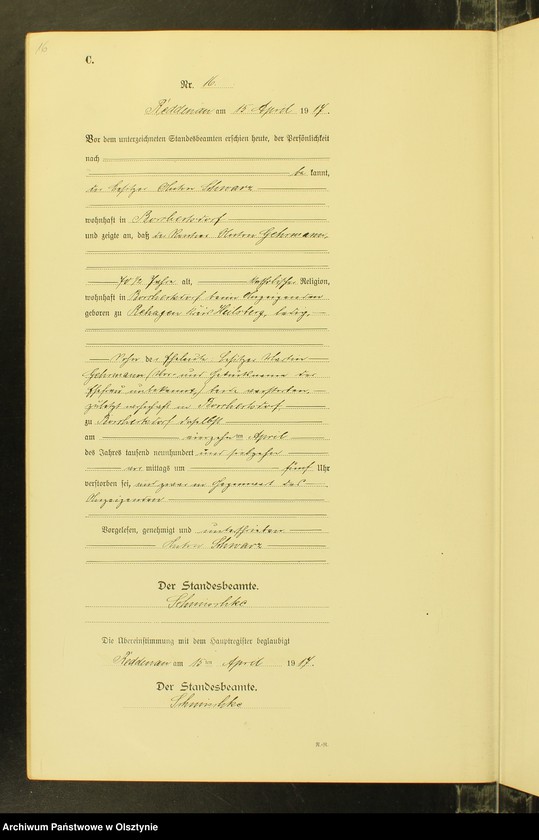 16
C.
Nr. 16.
Reddenau am 15 April 1917.
Vor dem unterzeichneten Standesbeamten erschien heute, der Persönlichkeit
nach
be kannt,
der Besitzer Anton Schwarz
wohnhaft in Borchertsdorf
und zeigte an, daß der Rentner Anton Gehrmann,
70 1/2 Jahre alt, katholischer Religion,
wohnhaft in Borchertsdorf beim Anzeigenden
geboren zu Rehagen Kreis Heilsberg, ledig,
Sohn der Eheleute, Besitzer
Gehrmann (Vor- und Geburtsname der
Ehefrau unbekannt,) beide verstorben,
zuletzt wohnhaft in Borchertsdorf
zu Borchertsdorf daselbst
am April
des Jahres tausend neunhundert und siebzehn
vor mittags um fünf Uhr
verstorben sei, und zwar in Gegenwart des
Anzeigenden
Vorgelesen, genehmigt und unterschrieben
Anton Schwarz
Der Standesbeamte.
Die Übereinstimmung mit dem Hauptregister beglaubigt
Reddenau am 15ten April 1917.
Der Standesbeamte.
Archiwum Państwowe w Olsztynie